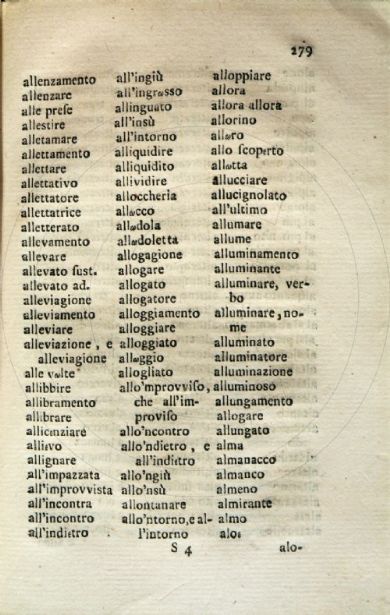 279
allenzamento
allenzare
alle prese
allestire
alletamare
allettamento
allettare
allettativo
allettatore
allettatrice
alletterato
allevamento
allevare
allevato sust.
allevato ad.
alleviagione
alleviamento
alleviare
alleviazione, e
alleviagione
alle volte
allibbire
allibramento
allibrare
allicenziare
allignare
all'impazzata
all'improvvista
all'incontra
all'incontro
all'indietro
all'ingiù
all'ingrosso
allinguato
all'insù
all'intorno
alliquidire
alliquidito
allividire
alloccheria
allocco
allodola
allodoletta
allogagione
allogare
allogato
allogatore
alloggiamento
alloggiare
alloggiato
alloggio
allogliato
allo'mprovviso,
che all'im-
proviso
allo'ncontro
allo'ndietro, e
all'indietro
allo'ngiù
allo'nsù
allontanare
allo'ntorno, e al-
l'intorno
alloppiare
allora
allora allora
allorino
alloro
allo scoperto
allotta
allucciare
allucignolato
all'ultimo
allumare
allume
alluminamento
alluminante
alluminare, ver-
bo
alluminare, no-
me
alluminato
alluminatore
alluminazione
alluminoso
allungamento
allogare
allungato
alma
almanacco
almanco
almeno
almirante
almo
aloè
S 4
alo-